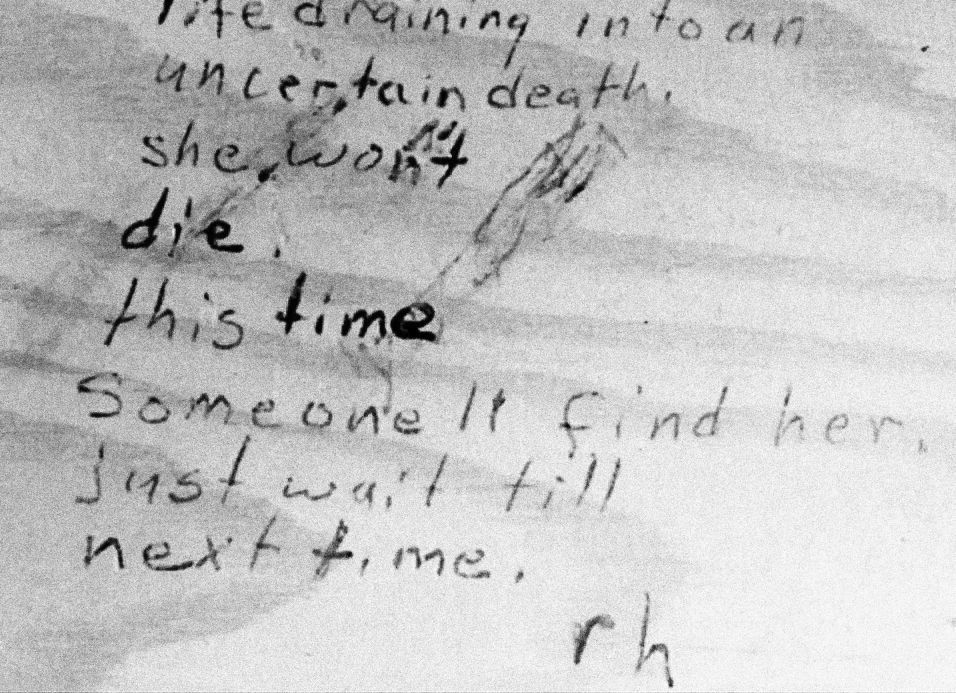 life draining into an
uncertain death.
she won't
die.
this time
Someone ll find her.
just wait till
next time.
rh